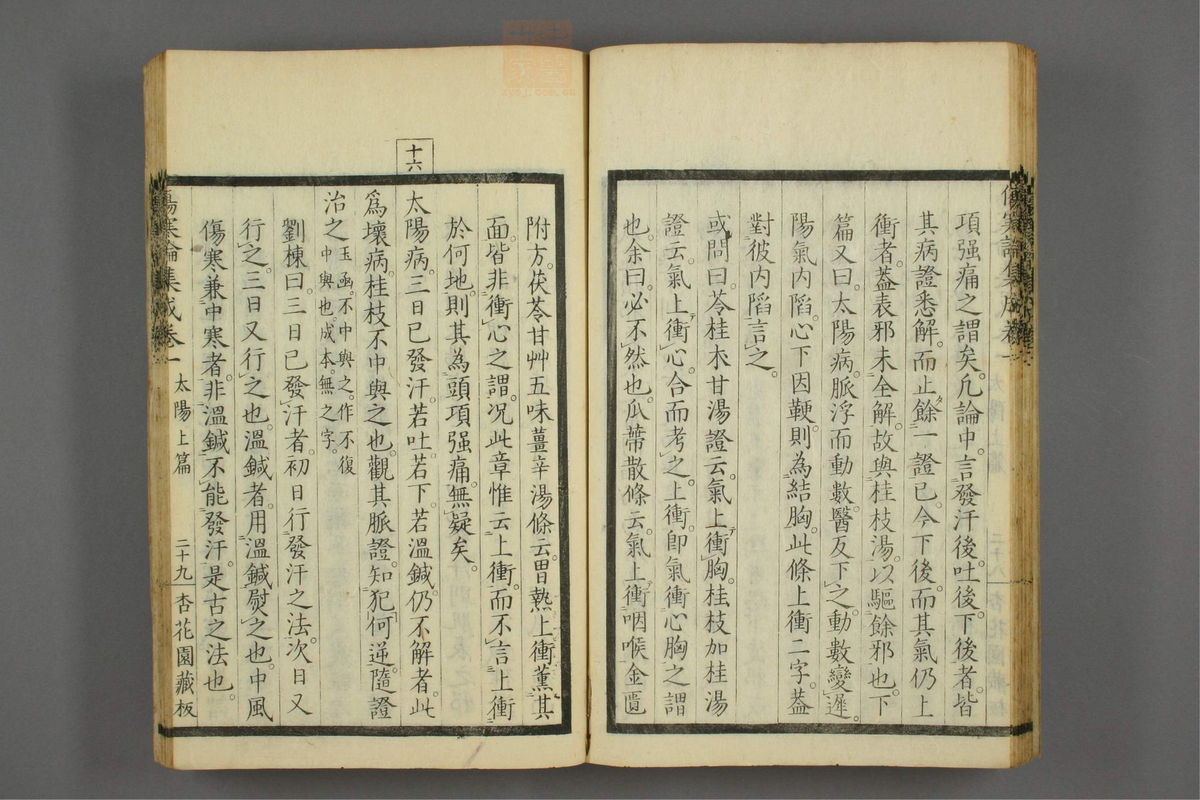 項强痛之謂矣凡論中言發汗後吐後下後者皆
其病證悉解而止餘一證已今下後而其氣仍上
衝者蓋表邪未全解故與桂枝湯以驅餘邪也下
篇又曰太陽病脈浮而動數醫反下之動數變遲
陽氣內陷心下因鞕則為結胸此條上衝二字蓋
對彼内陷言之
或問曰苓桂朮甘湯證云氣上衝胸桂枝加桂湯
證云氣上衝心合而考之上衝卽氣衝心胸之謂
也余曰必不然也瓜蔕散條云氣上衝咽喉金匱
傷寒論集成卷一
附方茯苓甘艸五味薑辛湯條云胃熱上衝薰其
面皆非衝心之謂況此章惟云上衝而不言上衝
於何地則其為頭項强痛無疑矣
十六
太陽病三日已發汗若吐若下若溫鍼仍不解者此
爲壞病桂枝不中與之也觀其脈證知犯何逆隨證
治之玉函不中與之作不復
中與也成本無之字
劉棟曰三日已發汗者初日行發汗之法次日又
行之三日又行之也溫鍼者用溫鍼熨之也中風
傷寒兼中寒者非溫鍼不能發汗是古之法也
傷寒論集成卷一 太陽上篇 二十九 杏花園藏板